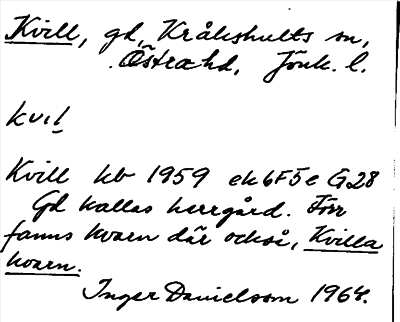 Kvill, gd, Kråkshults sn,
Östra hd, Jönk. l.
kvıl
Kvill kb 1959 ek 6F5e G28
Gd kallas herrgård. Förr
fanns kvarn där också, Kvilla
kvarn.
Inger Danielsson 1964.